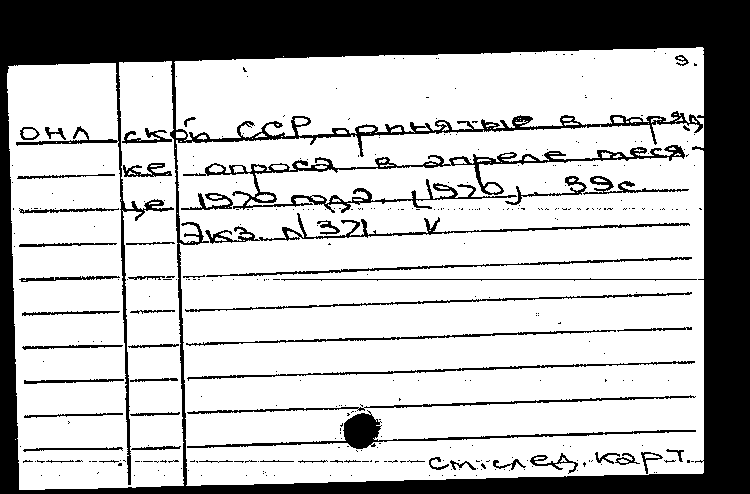 9.
ОНЛ ской ССР, принятые в поряд-
ке опроса в апреле меся-
це 1970 года. [1970]. 39с.
Экз. N 371. V
см. след. карт.